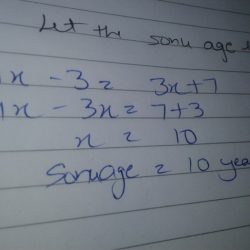 Let the sonu age
x - 3 = 3x + 7
x - 3x = 7 + 3
x = 10
Sonuage = 10 yea